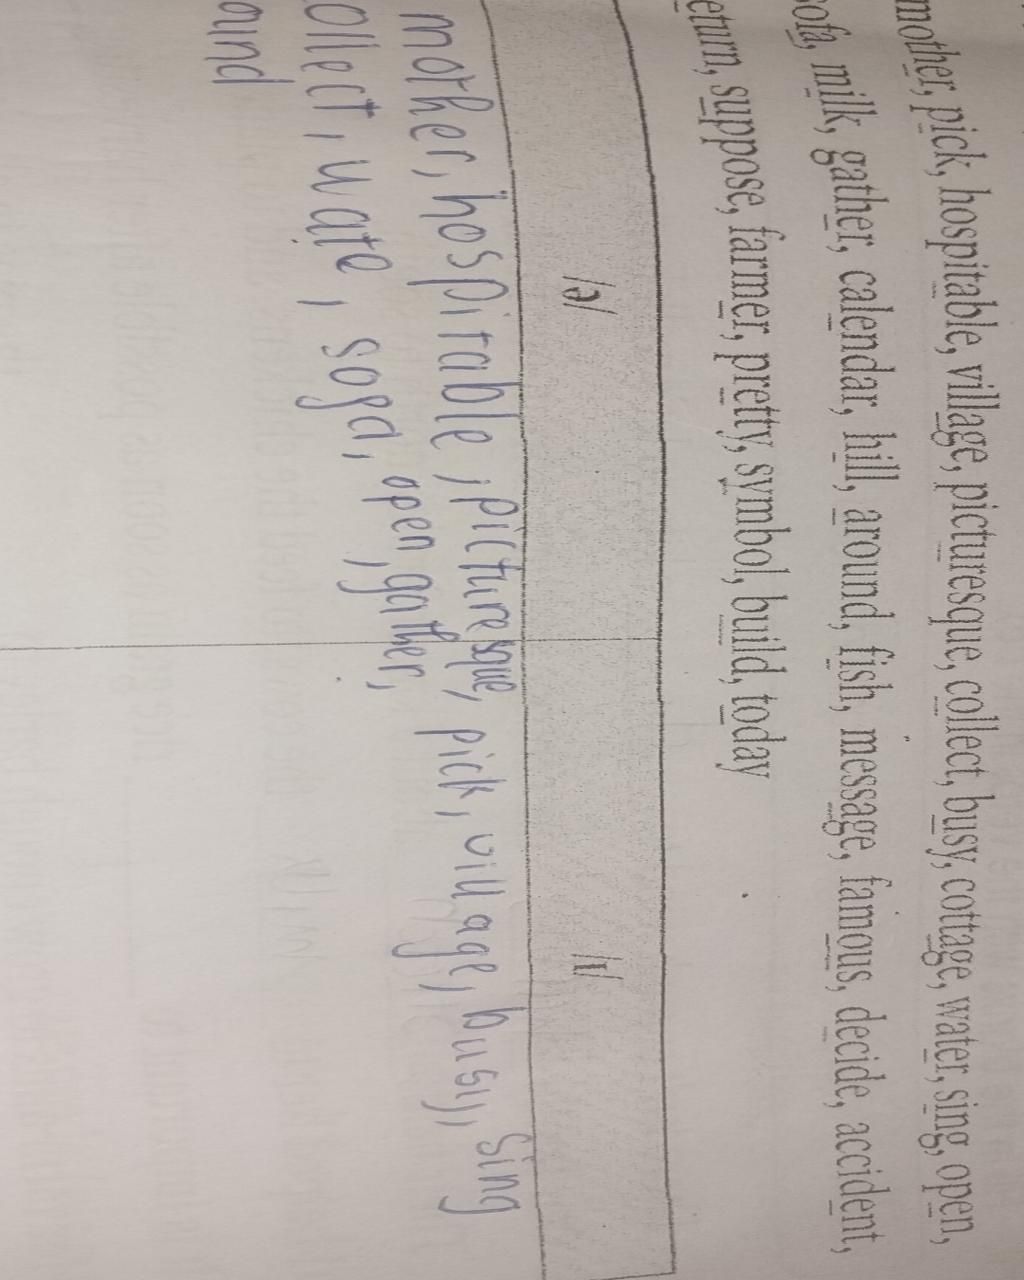 mother, pick, hospitable, village, picturesque, collect, busy, cottage, water, sing, open,
sofa, milk, gather, calendar, hill, around, fish, message, famous, decide, accident,
eturn, suppose, farmer, pretty, symbol, build, today
/ə/ /ɪ/
mother, hospitable, picturesque, pick, village, busy, sing
ollect, uate, sogd, open, gather,
aund